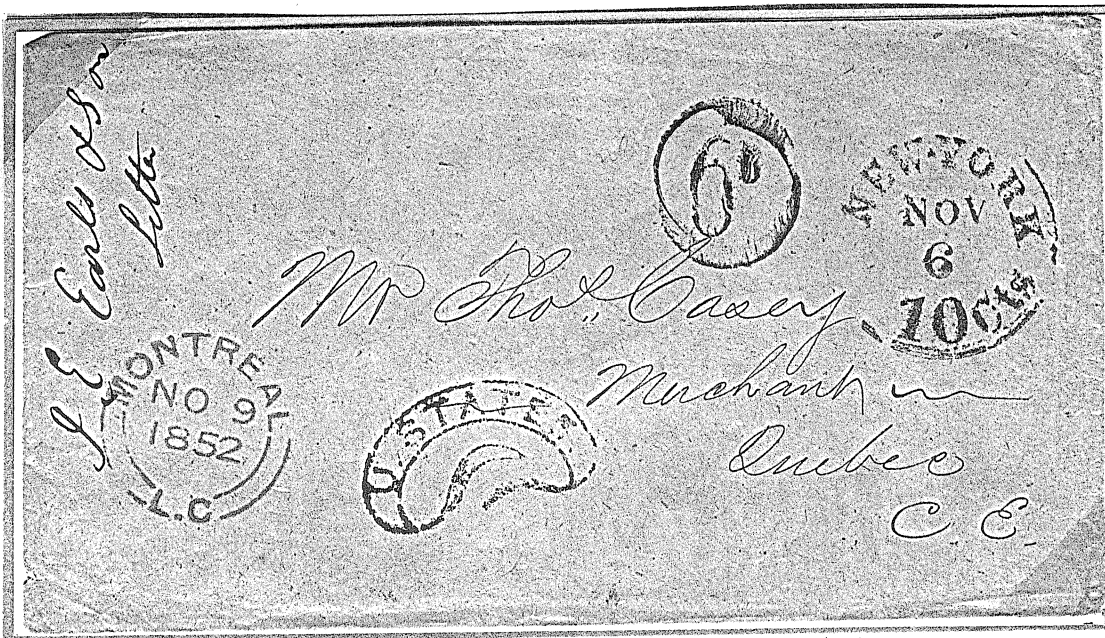 Earls & Son
letter
6D
NEW-YORK
NOV
6
10 Cts
Mr Thos. Casey
Merchant
Quebec
C. E.
MONTREAL
NO 9
1852
L.C
U. STATES